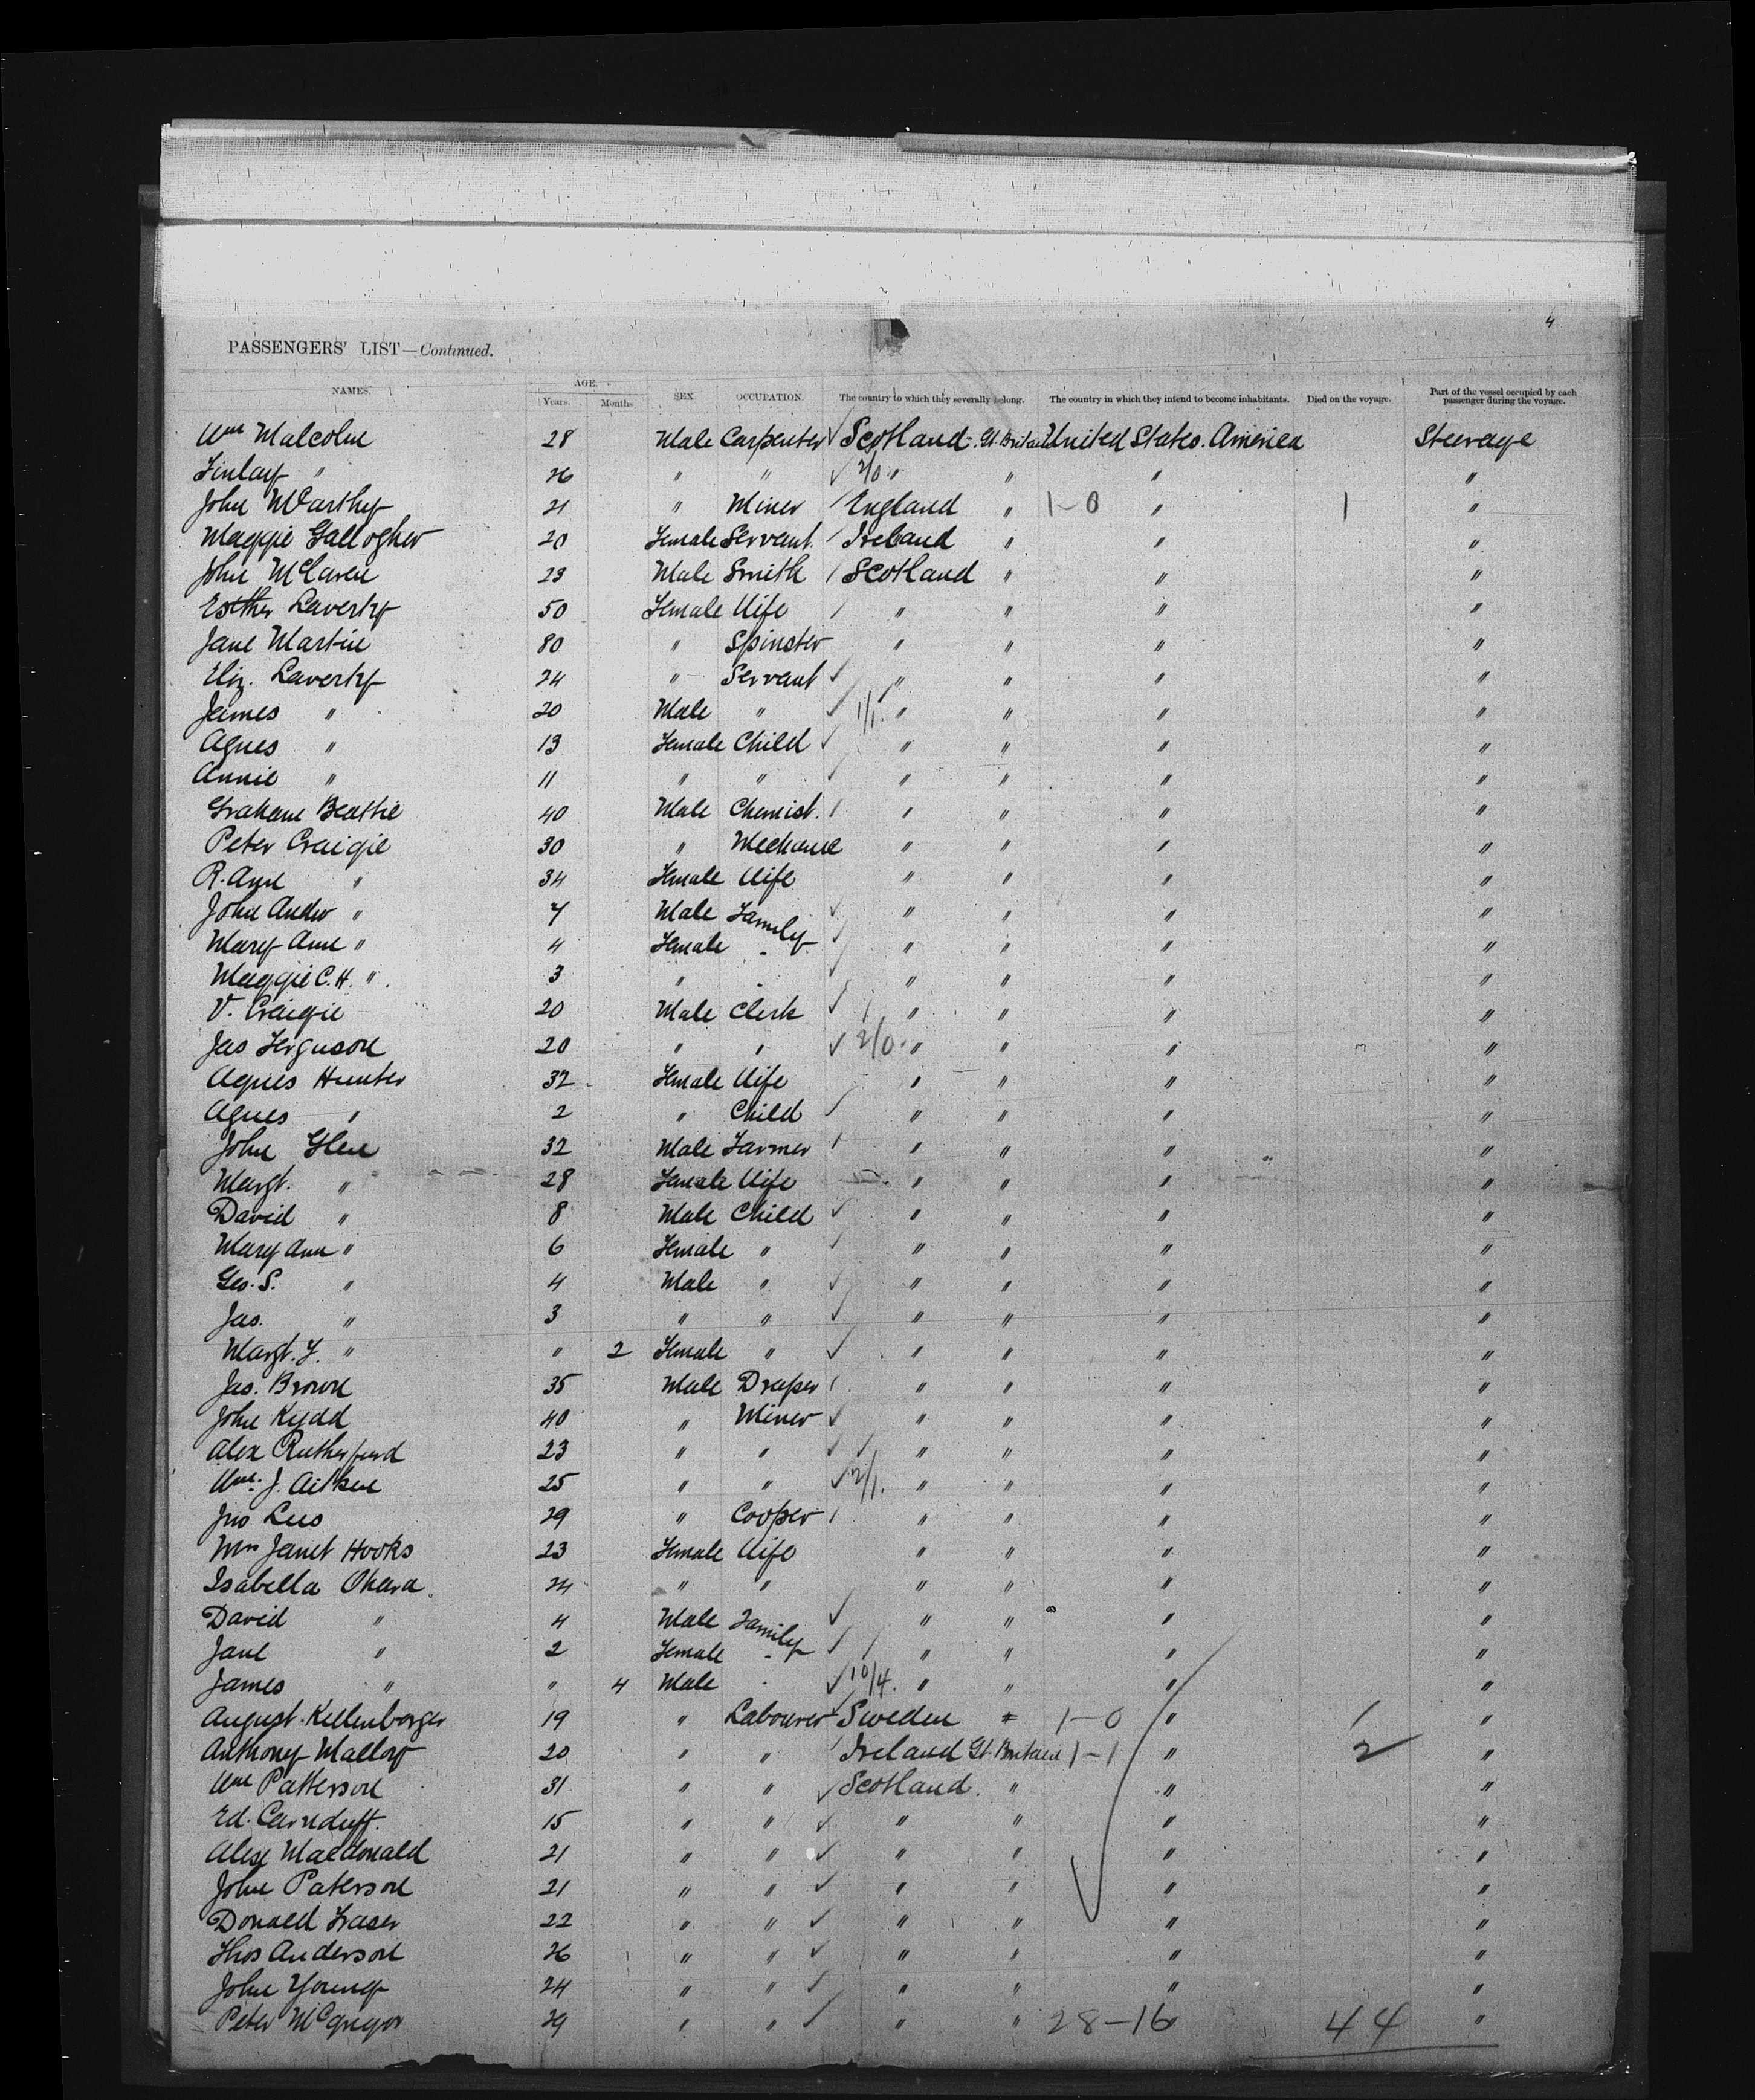 4
PASSENGERS' LIST—Continued.
NAMES. AGE. Years. Months. SEX. OCCUPATION. The country to which they severally belong. The country in which they intend to become inhabitants. Died on the voyage. Part of the vessel occupied by each passenger during the voyage.
Wm Malcolm 28 Male Carpenter Scotland. Gt. Britain United States. America Steerage
Finlay " 26 " " 2/0 " " " "
John McCarthy 21 " Miner England " 1-0 " 1 "
Maggie Gallogher 20 Female Servant. Ireland " " "
John McLaren 23 Male Smith Scotland " " "
Esther Laverty 50 Female Wife " " " "
Jane Martin 80 " Spinster " " " "
Eliz. Laverty 24 " Servant " " " "
James " 20 Male " 1/1. " " " "
Agnes " 13 Female Child " " " "
Annie " 11 " " " " " "
Graham Beattie 40 Male Chemist. " " " "
Peter Craigie 30 " Mechanic " " " "
R. Ann " 34 Female Wife " " " "
John Andw " 7 Male Family " " " "
Mary Ann " 4 Female " " " " "
Maggie C. H. " 3 " " " " " "
V. Craigie 20 Male Clerk " " " "
Jas Ferguson 20 " " 2/0. " " " "
Agnes Hunter 32 Female Wife " " " "
Agnes " 2 " Child " " " "
John Glen 32 Male Farmer " " " "
Margt. " 28 Female Wife " " " "
David " 8 Male Child " " " "
Mary Ann " 6 Female " " " " "
Geo. S. " 4 Male " " " " "
Jas. " 3 " " " " " "
Margt. Y. " " 2 Female " " " " "
Jas. Brown 35 Male Draper " " " "
John Kydd 40 " Miner " " " "
Alex Rutherfurd 23 " " " " " "
Wm. J. Aitken 25 " " 2/1. " " " "
Jno Lees 29 " Cooper " " " "
Mrs Janet Hooks 23 Female Wife " " " "
Isabella Ohara 24 " " " " " "
David " 4 Male Family " " " "
Jane " 2 Female " " " " "
James " " 4 Male " 10/4. " " " "
August Kellenborger 19 " Labourer Sweden " 1-0 " 1 "
Anthony Malloy 20 " " Ireland Gt. Britain 1-1 " 2 "
Wm Patterson 31 " " Scotland. " " "
Ed. Carnduff. 15 " " " " " "
Alex Macdonald 21 " " " " " "
John Paterson 21 " " " " " "
Donald Fraser 22 " " " " " "
Thos Anderson 26 " " " " " "
John Young 24 " " " " " "
Peter McGregor 29 " " " " 28-16 44 "